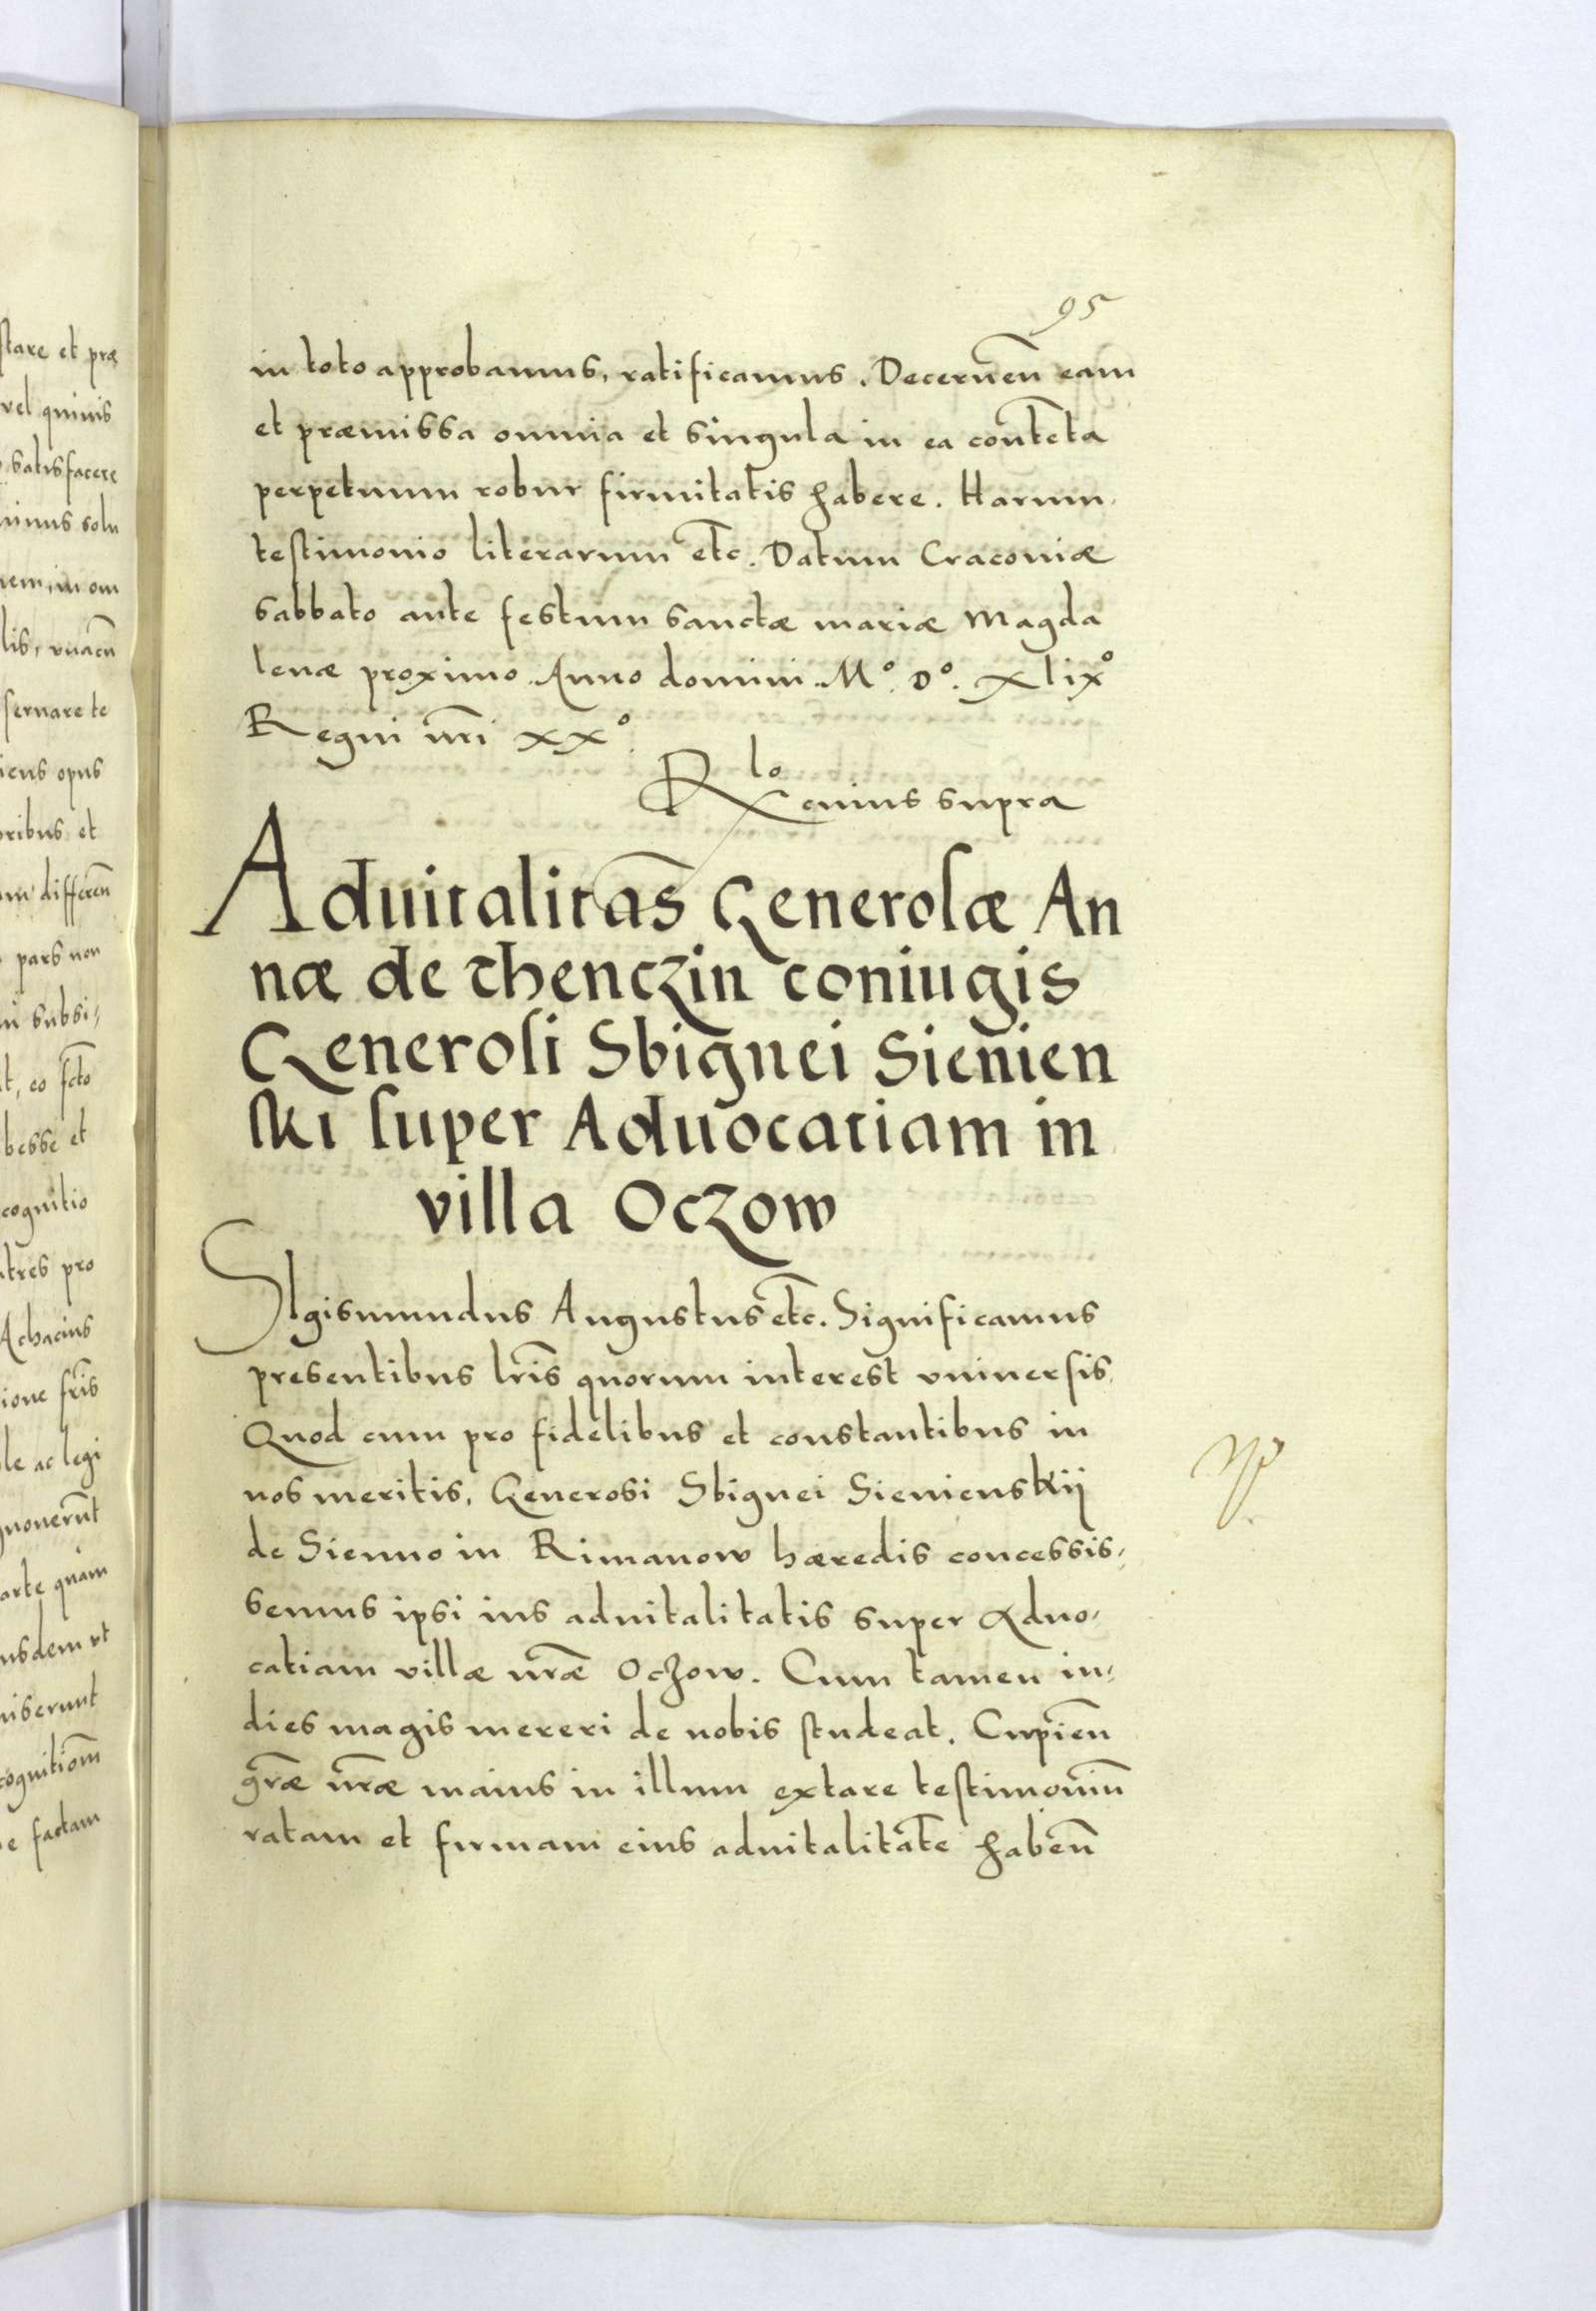 95
in toto approbamus, ratificamus. Decernen̄ eam
et præmissa omnia et singula in ea conten̄ta
perpetuum robur firmitatis habere. Harum
testimonio literarum etc̄. Datum Cracoviæ
sabbato ante festum sanctæ mariæ Magda
lenæ proximo. Anno domini. M°. D°. xlix°
Regni nr̄i xx°.
Rlo cuius supra
Aduitalitas Generosæ An
næ de thenczin coniugis
Generosi Sbignei Sienien
ski super Aduocatiam in
villa Oczow
SIgismundus Augustus etc̄. Significamus
presentibus lr̄is quorum interest vniuersis.
Quod cum pro fidelibus et constantibus in
nos meritis, Generosi Sbignei Sienienskij
de Sienno in Rimanow hæredis concessis-
semus ipsi ius aduitalitatis super Aduo-
catiam villæ nr̄æ Oczow. Cum tamen in-
dies magis mereri de nobis studeat. Cupien̄
gr̄æ nr̄æ maius in illum extare testimoniū
ratam et firmam eius aduitalitatē haben̄
stare et præ
vel quiuis
satisfacere
minus solu
nem, in om
lis, vnacū
seruare te
iens opus
oribus et
om differen̄
pars non
ni subsi-
t, eo fc̄to
besse et
cognitio
tres pro
Achacius
ione fr̄is
le ac legi
nouerūt
arte quam
usdem vt
miserunt
cognitiom̄
e factam